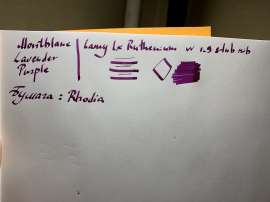 Montblanc
Lavender
Purple
Lamy Lx Ruthenium w 1.9 stub nib
Бумага : Rhodia